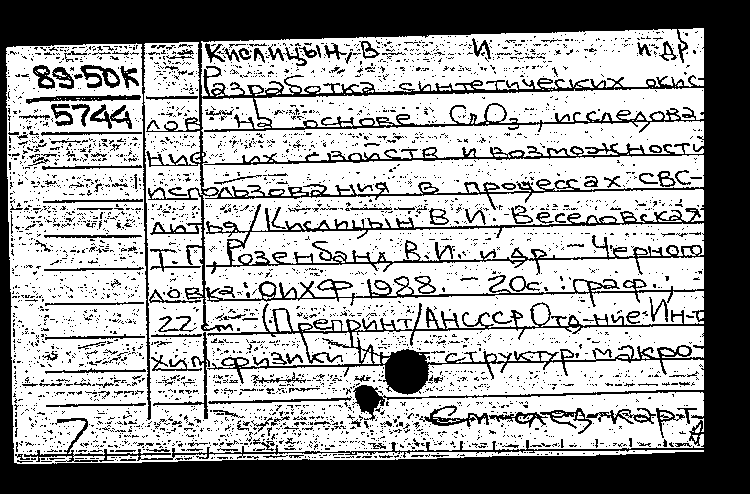 Кислицын, В И и др.
89-50К
5744
Разработка синтетических окис-
лов на основе CrO3, исследова-
ние их свойств и возможности
использования в процессах СВС-
литья/Кислицын В.И., Веселовская
Т.Г., Розенбанд В.И. и др. – Черного-
ловка: ОИХФ, 1988. – 20с.: граф.;
22 см. – (Препринт/АНСССР, Отд-ние Ин-та
хим. физики, Ин-т структур. макро-
См след карт
7